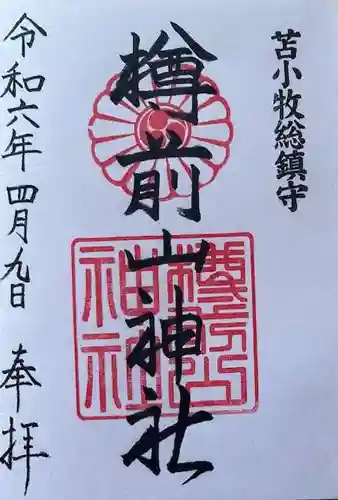 苫小牧総鎮守
樽前山神社
樽前山神社
令和六年四月九日 奉拝